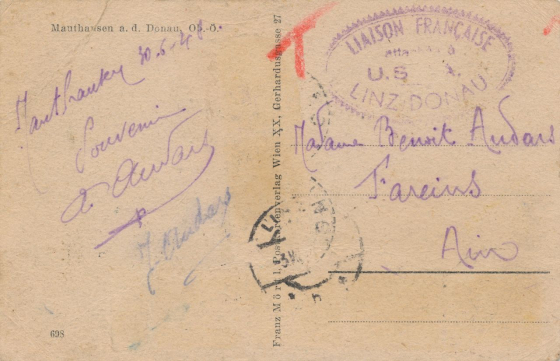 Mauthausen a. d. Donau, Ob.-Ö.
Mauthausen 30-6-48
Souvenir
A. Audars
J. Audars
698
Franz Mörtl, Postkartenverlag Wien XX, Gerhardusgasse 27
T
LIAISON FRANÇAISE
U.S
LINZ-DONAU
Madame Benoit Audars
Fareins
Ain